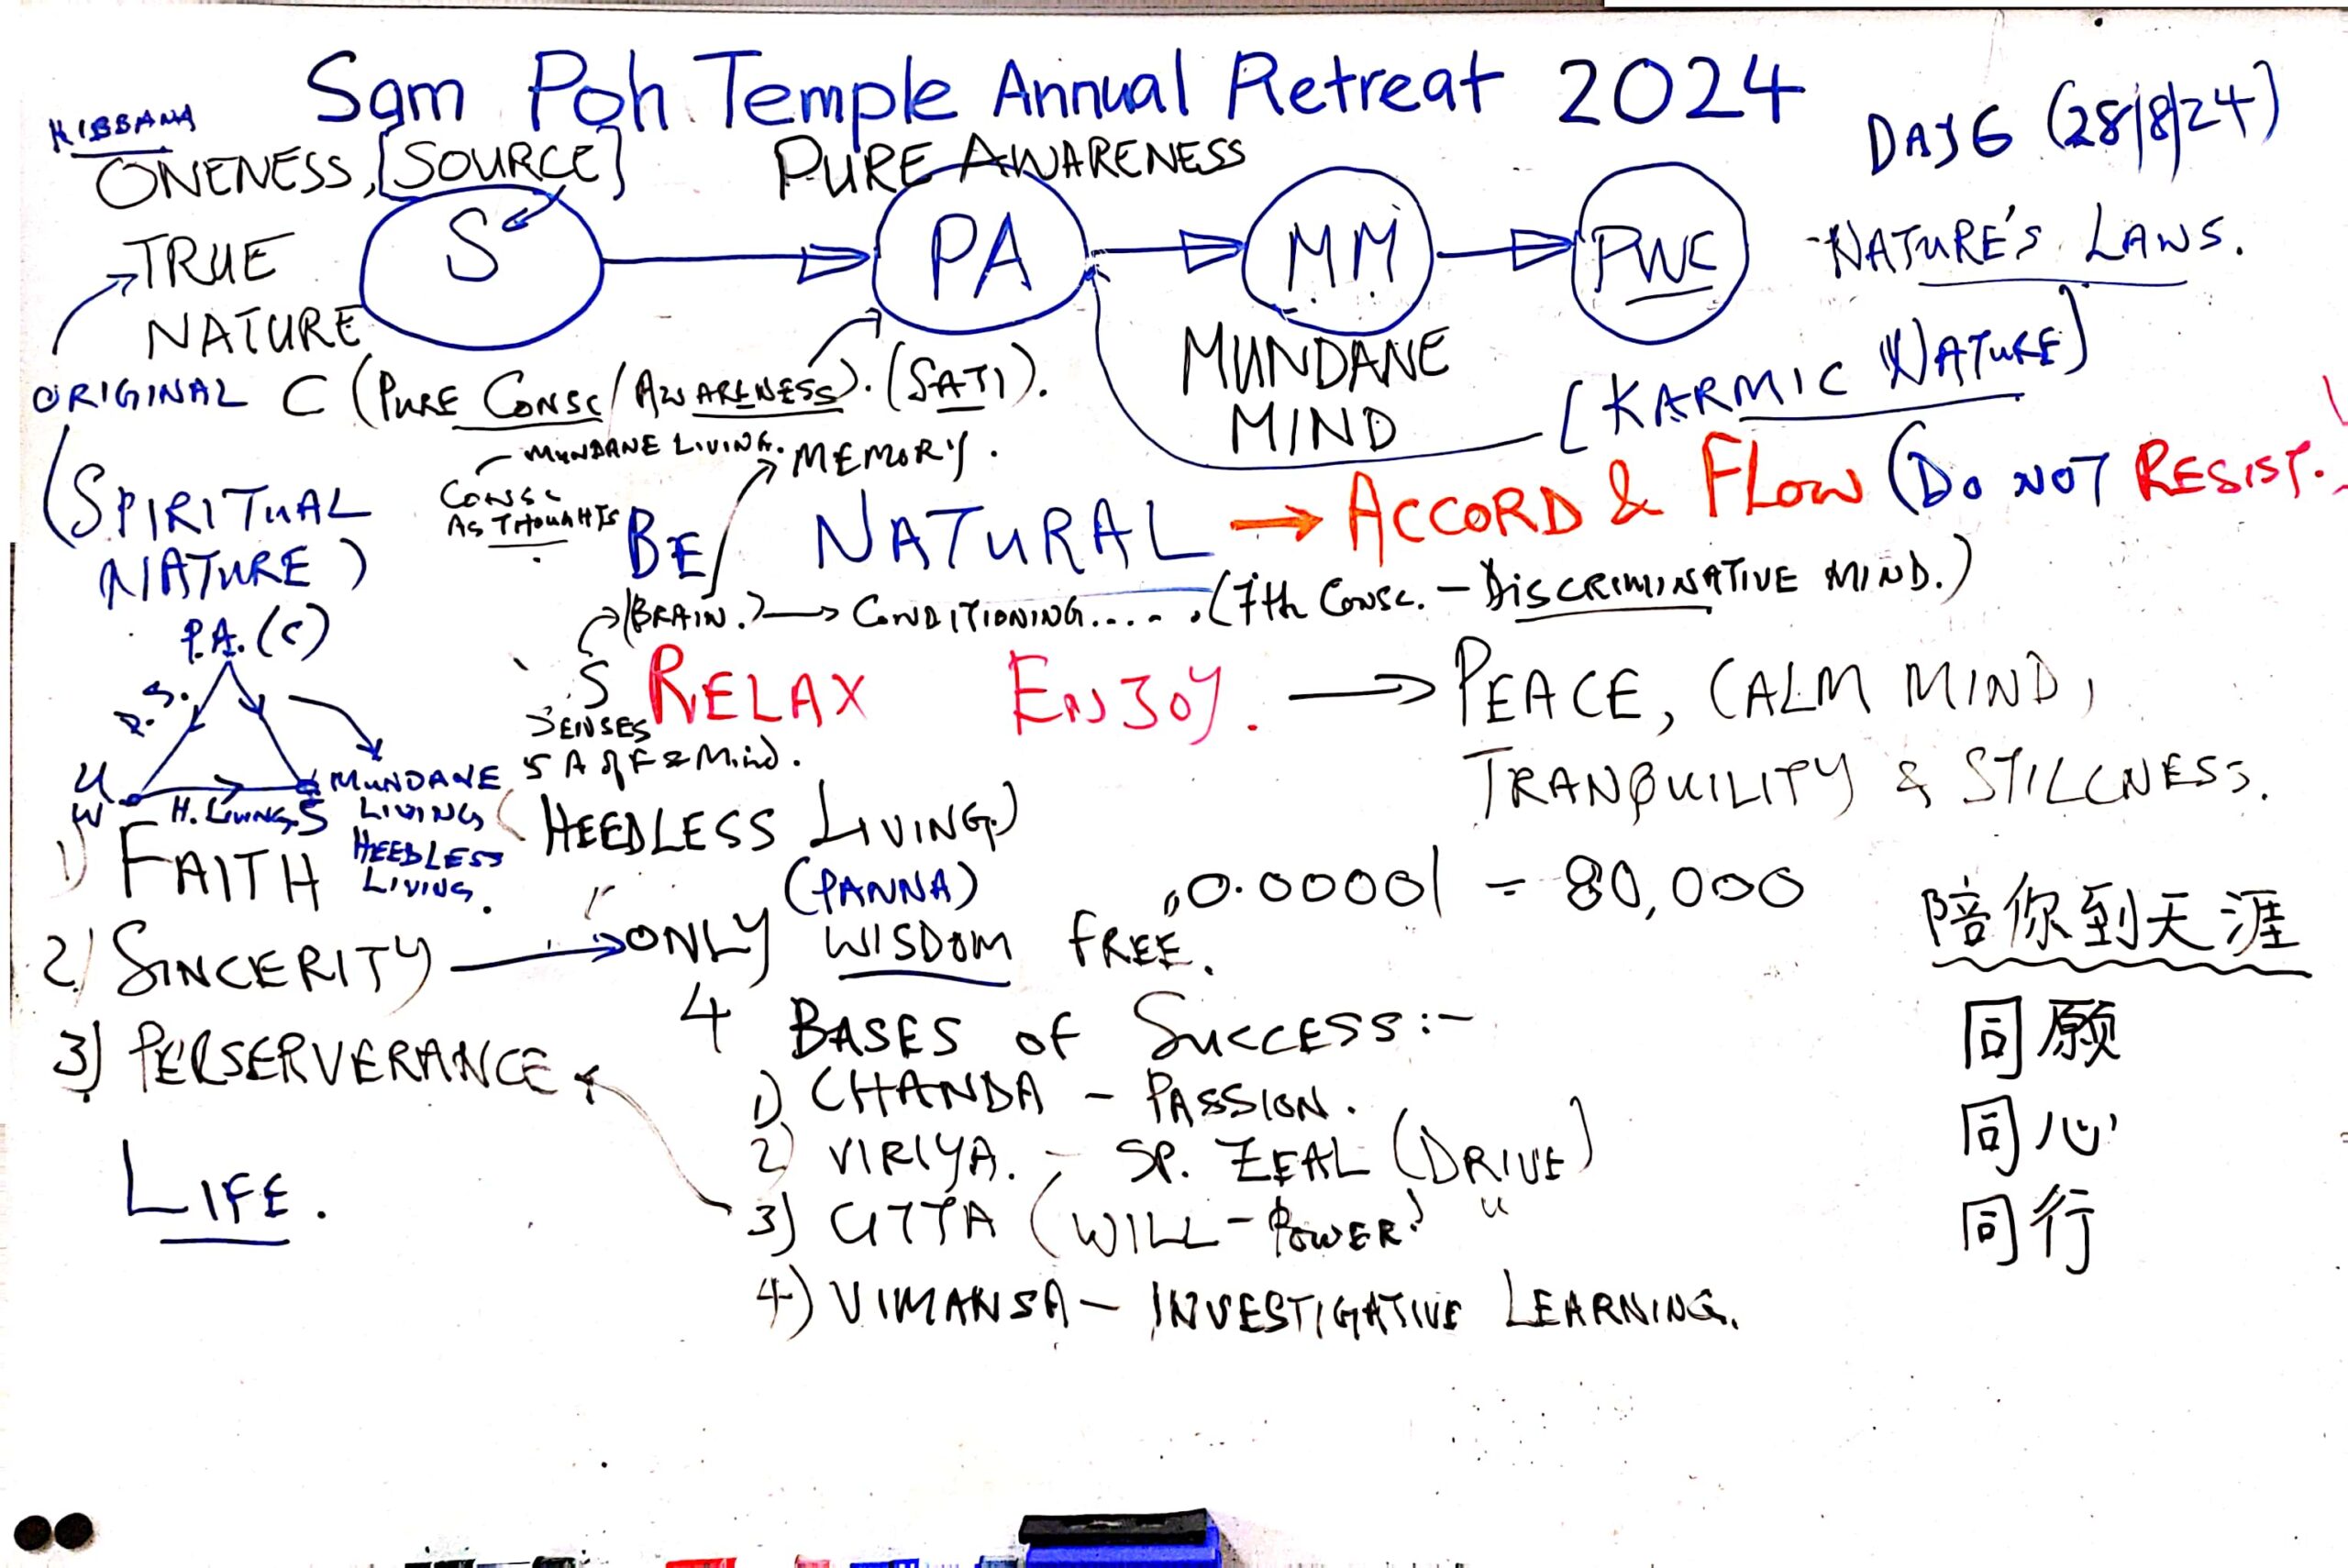 Sam Poh Temple Annual Retreat 2024
DAY 6 (28/8/24)
NIBBANA
ONENESS, [SOURCE]
PURE AWARENESS
TRUE
NATURE
S
PA
MM
PWC
NATURE'S LAWS.
MUNDANE
MIND
[KARMIC NATURE]
ORIGINAL C (PURE CONSC/AWARENESS). (SATI).
MUNDANE LIVING.
MEMORY.
CONSC
AS THOUGHTS
(SPIRITUAL
NATURE)
BE NATURAL → ACCORD & FLOW (DO NOT RESIST.
(BRAIN.) → CONDITIONING..... (7th CONSC. - DISCRIMINATIVE MIND.)
P.A. (C)
S
SENSES
5 A of F & Mind.
RELAX ENJOY. → PEACE, CALM MIND,
TRANQUILITY & STILLNESS.
H. LIVING
S
MUNDANE
LIVING
HEEDLESS
LIVING.
(HEEDLESS LIVING)
1) FAITH
(PANNA)
0.00001 = 80,000
2) SINCERITY → ONLY WISDOM FREE.
3) PERSERVERANCE
LIFE.
4 BASES OF SUCCESS:-
1) CHANDA - PASSION.
2) VIRIYA. - SP. ZEAL (DRIVE)
3) CITTA (WILL-POWER) "
4) VIMANSA - INVESTIGATIVE LEARNING.
陪你到天涯
同愿
同心
同行